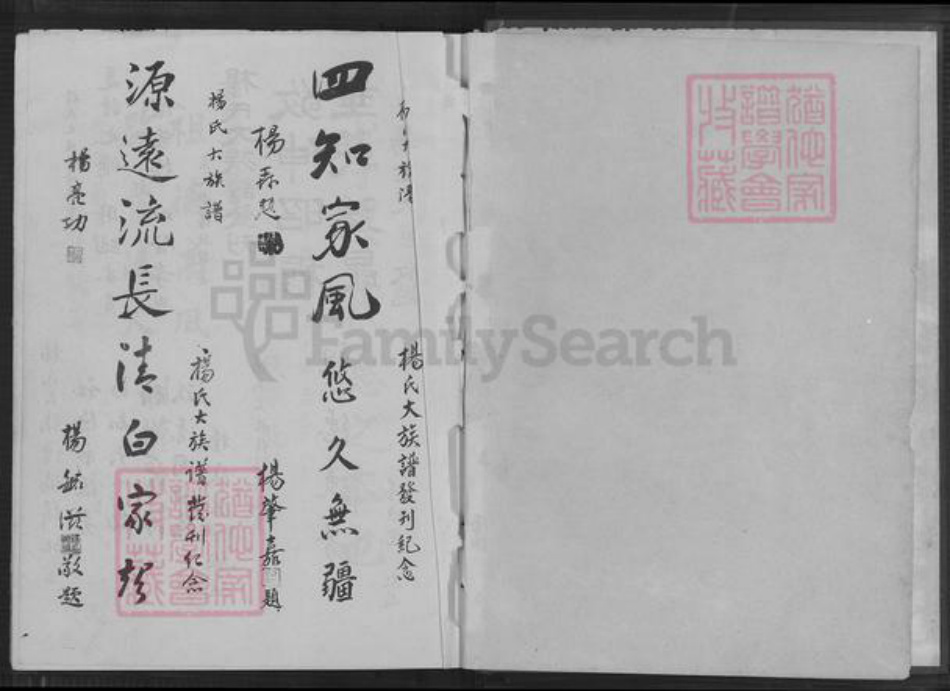 猶他家譜學會收藏
四知家風
楊森題
楊氏大族譜發刊紀念
悠久無疆
楊肇嘉題
楊氏大族譜
源遠流長
楊亮功
楊氏大族譜發刊紀念
清白家聲
楊毓滋敬題
猶他家譜學會收藏
FamilySearch